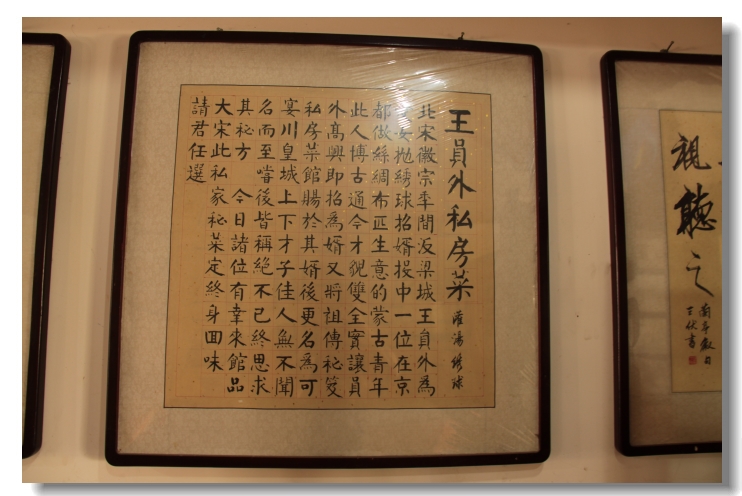 王員外私房菜 灌湯绣球
北宋徽宗年間汲梁城王員外為
女拋綉球招婿投中一位在京
都做絲綢布匹生意的蒙古青年
此人博古通今才貌雙全實讓員
外高興即招為婿又將祖傳祕笈
私房菜館賜於其婿後更名為可
宴川皇城上下才子佳人無不聞
名而至嚐後皆稱絕不已終思求
其祕方 今日諸位有幸來館品
大宋此私家祕菜定終身回味
請君任選
視聽之